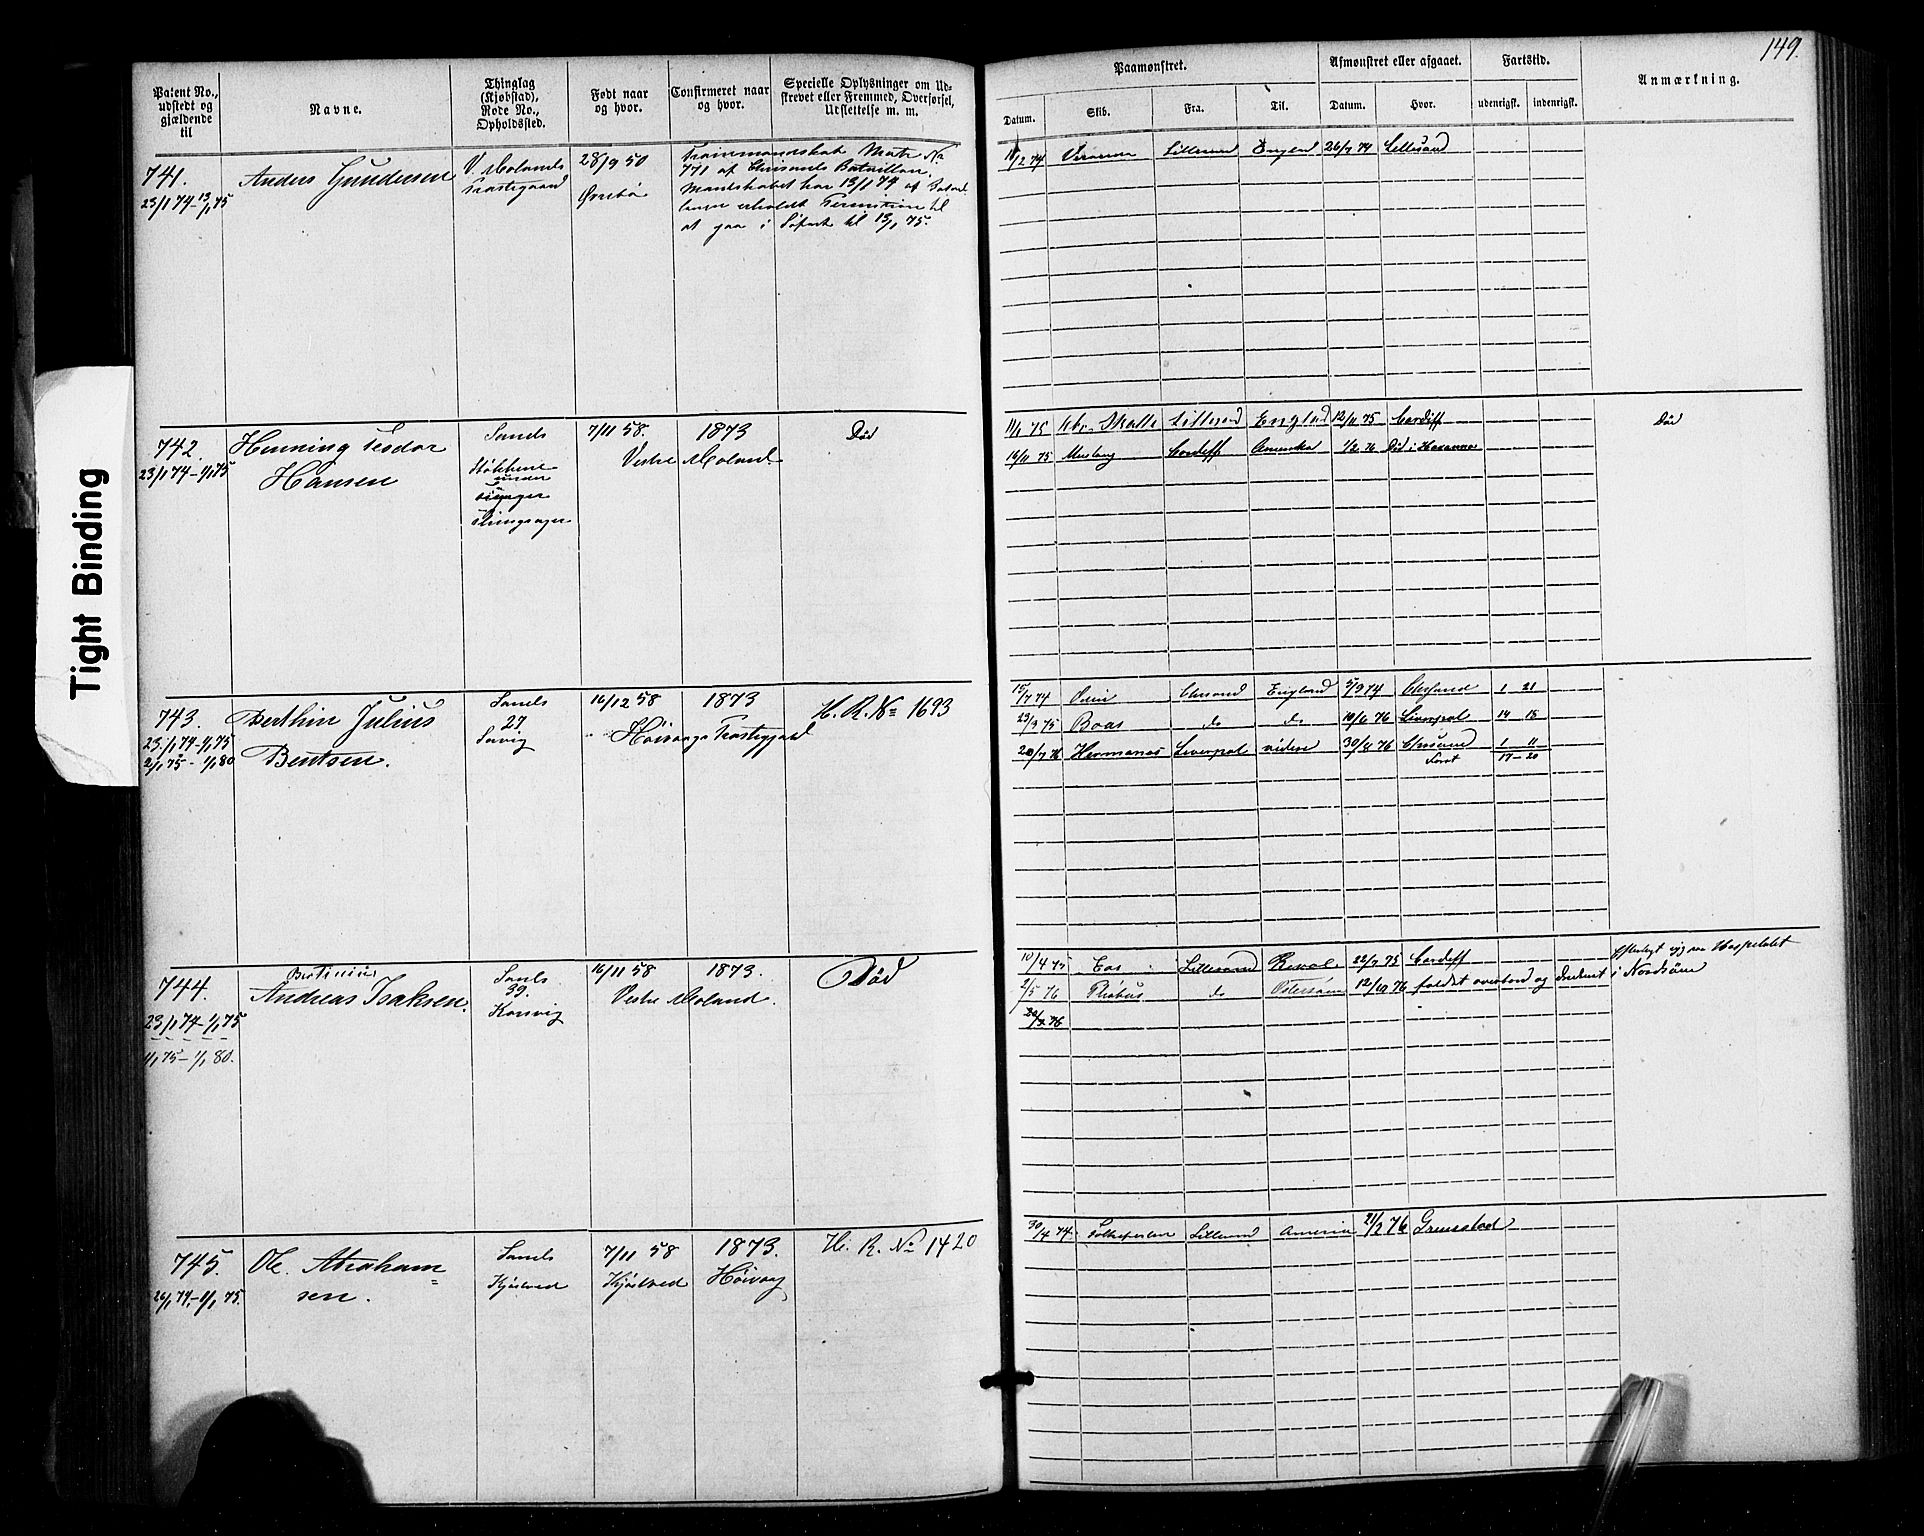 149.
Patent No., udstedt og gjældende til
Navne.
Thinglag (Kjøbstad), Rode No., Opholdssted.
Født naar og hvor.
Confirmeret naar og hvor.
Specielle Oplysninger om Udskrevet eller Fremmed, Overførsel, Udslettelse m. m.
Paamønstret.
Afmønstret eller afgaaet.
Fartstid.
Anmærkning.
Datum.
Skib.
Fra.
Til.
Datum.
Hvor.
udenrigsk.
indenrigsk.
Tight Binding
741.
23/1 74 - 13/1 75
Anders Gundersen
V. Molands
Præstegaard
28/9 50
Øvrebø
771 af Chrisands Bataillon.
Mandskabet har 13/1 74 af
erholdt Permission til
at gaa i Søfart til 13/1 75.
11/2 74
Lillesand
England
26/7 74
Lillesand
742.
23/1 74 - 1/1 75
Henning Teodor
Hansen
Sands
7/11 58.
1873
Vestre Moland
Død
11/1 75
Lillesand
England
12/11 75
Cardiff
Død
16/11 75
Cardiff
Amerika
1/2 76
Død i Havanna
743.
23/1 74 - 1/1 75
2/1 75 - 1/1 80
Berthin Julius
Bentsen.
Sands
27
16/12 58
1873
Høivaags Præstegjæld
H. R. No 1693
15/7 74
Chrsand
England
5/9 74
Chrsand
1 21
23/3 75
Boas
do
do
10/6 76
Liverpol
14 18
20/7 76
Hermanos
Liverpol
videre
30/11 76
Chrsand
1 11
17 - 20
744.
23/1 74 - 1/1 75
1/1 75 - 1/1 80.
Bertinius
Andreas Isaksen.
Sands
39.
Korsvig
16/11 58
1873.
Vestre Moland.
Død
10/4 75
Lillesand
Reval
22/7 75
Cardiff
i Nordsøen
2/5 76
do
Østersøen
12/10 76
faldet overbord og druknet
745.
26/1 74 - 1/1 75.
Ole Abraham=
sen.
Sands
Kjøstved
7/11 58
Kjøstved
1873.
Høivaag
H. R. No 1420
30/4 74
Lillesand
Amerika
21/2 76
Grimstad